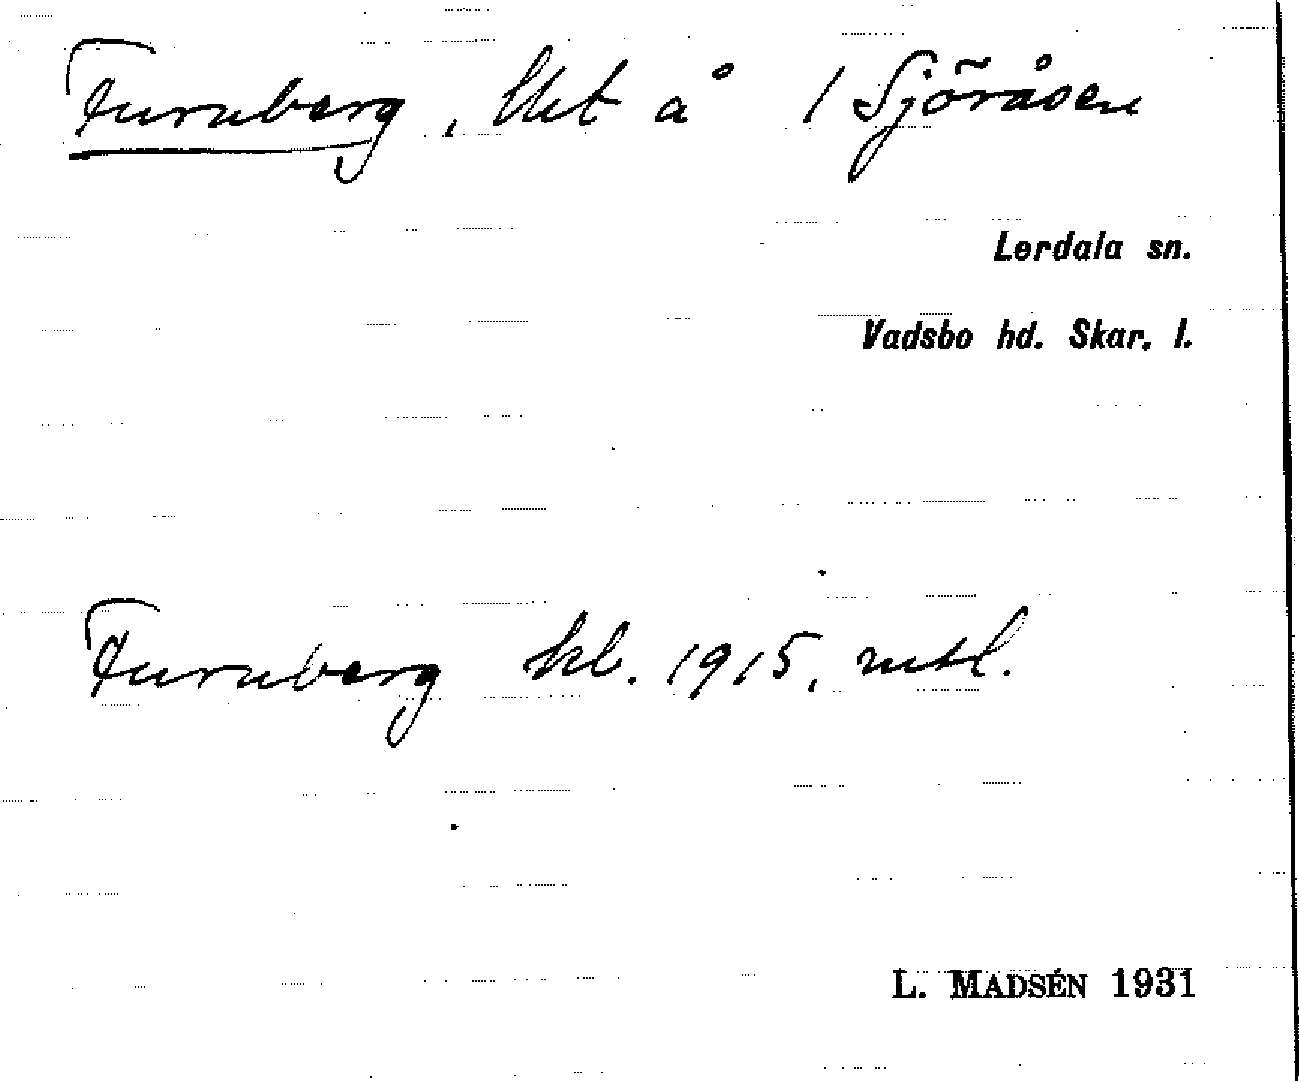 Furuberg, lht å 1 Sjöråsen
Lerdala sn.
Vadsbo hd. Skar. l.
Furuberg kl. 1915, mtl.
L. MADSÉN 1931